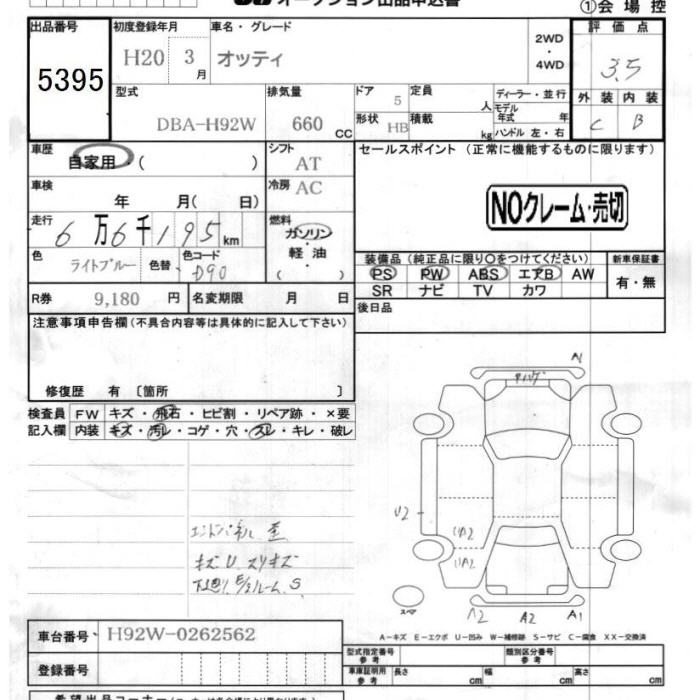 オークション出品申込書
①会場控
出品番号
5395
初度登録年月
H20 3月
車名・グレード
オッティ
2WD
・
4WD
評価点
3.5
外装 内装
C B
型式
DBA-H92W
排気量
660 CC
ドア 5
形状 HB
定員 人
積載 kg
ディーラー・並行
モデル年式 年
ハンドル 左・右
車歴
自家用・( )
シフト
AT
セールスポイント (正常に機能するものに限ります)
NOクレーム・売切
車検
年 月( 日)
冷房 AC
走行
6万6千195km
燃料
ガソリン・
軽油・
( )
色
ライトブルー
色替
色コード
D90
装備品(純正品に限り○をつけてください)
PS PW ABS エアB AW
SR ナビ TV カワ
新車保証書
有・無
R券 9,180 円
名変期限 月 日
後日品
注意事項申告欄(不具合内容等は具体的に記入して下さい)
修復歴 有 〔箇所 〕
検査員
記入欄
FW キズ・飛石・ヒビ割・リペア跡・×要
内装 キズ・汚レ・コゲ・穴・スレ・キレ・破レ
A1
U2
UA2
UA2
スペア
A2 A2 A1
キズ U スリキズ
A−キズ E−エクボ U−凹み W−補修跡 S−サビ C−腐食 XX−交換済
車台番号 H92W-0262562
登録番号
型式指定番号
参考
類別区分番号
参考
車庫証明用
参考
長さ cm
幅 cm
高さ cm